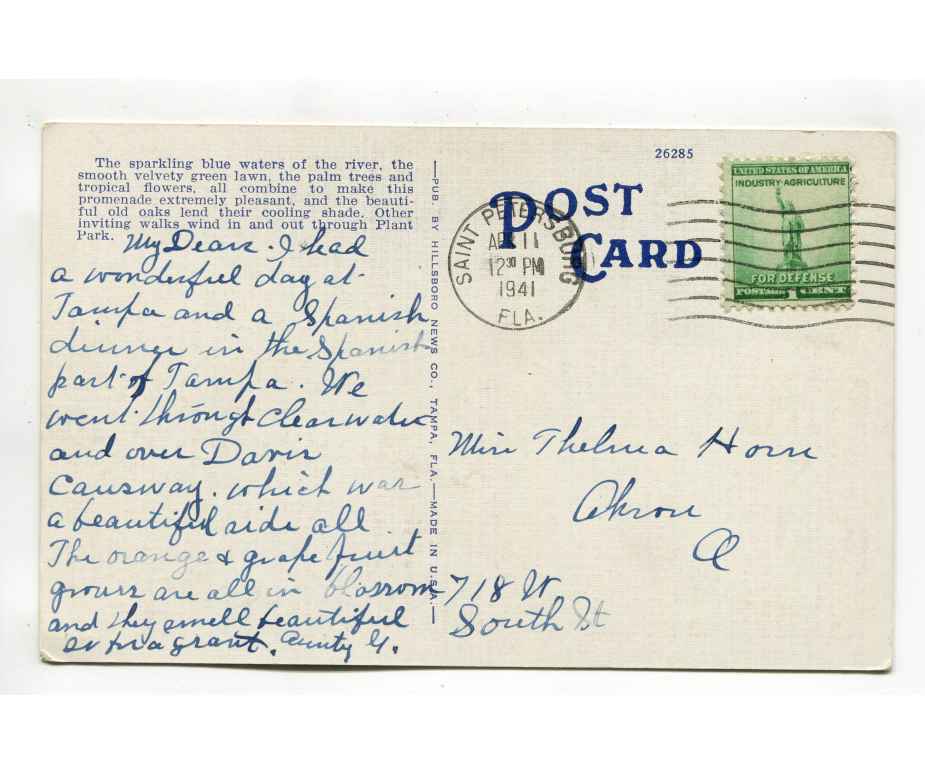 The sparkling blue waters of the river, the
smooth velvety green lawn, the palm trees and
tropical flowers, all combine to make this
promenade extremely pleasant, and the beauti-
ful old oaks lend their cooling shade. Other
inviting walks wind in and out through Plant
Park.
My Dears. I had
a wonderful day at
Tampa and a Spanish
dinner in the Spanish
part of Tampa. We
went through Clearwater
and over Davis
Causway. which was
a beautiful ride all
The orange & grape fruit
groves are all in blossom
and they smell beautiful
so fragrant. Aunty G.
PUB. BY HILLSBORO NEWS CO., TAMPA, FLA.—MADE IN U.S.A.
26285
POST
CARD
SAINT PETERSBURG
APR 11
12 30 PM
1941
FLA.
UNITED STATES OF AMERICA
INDUSTRY·AGRICULTURE
FOR DEFENSE
POSTAGE 1 CENT
Miss Thelma Horn
Akron
O
718 W
South St